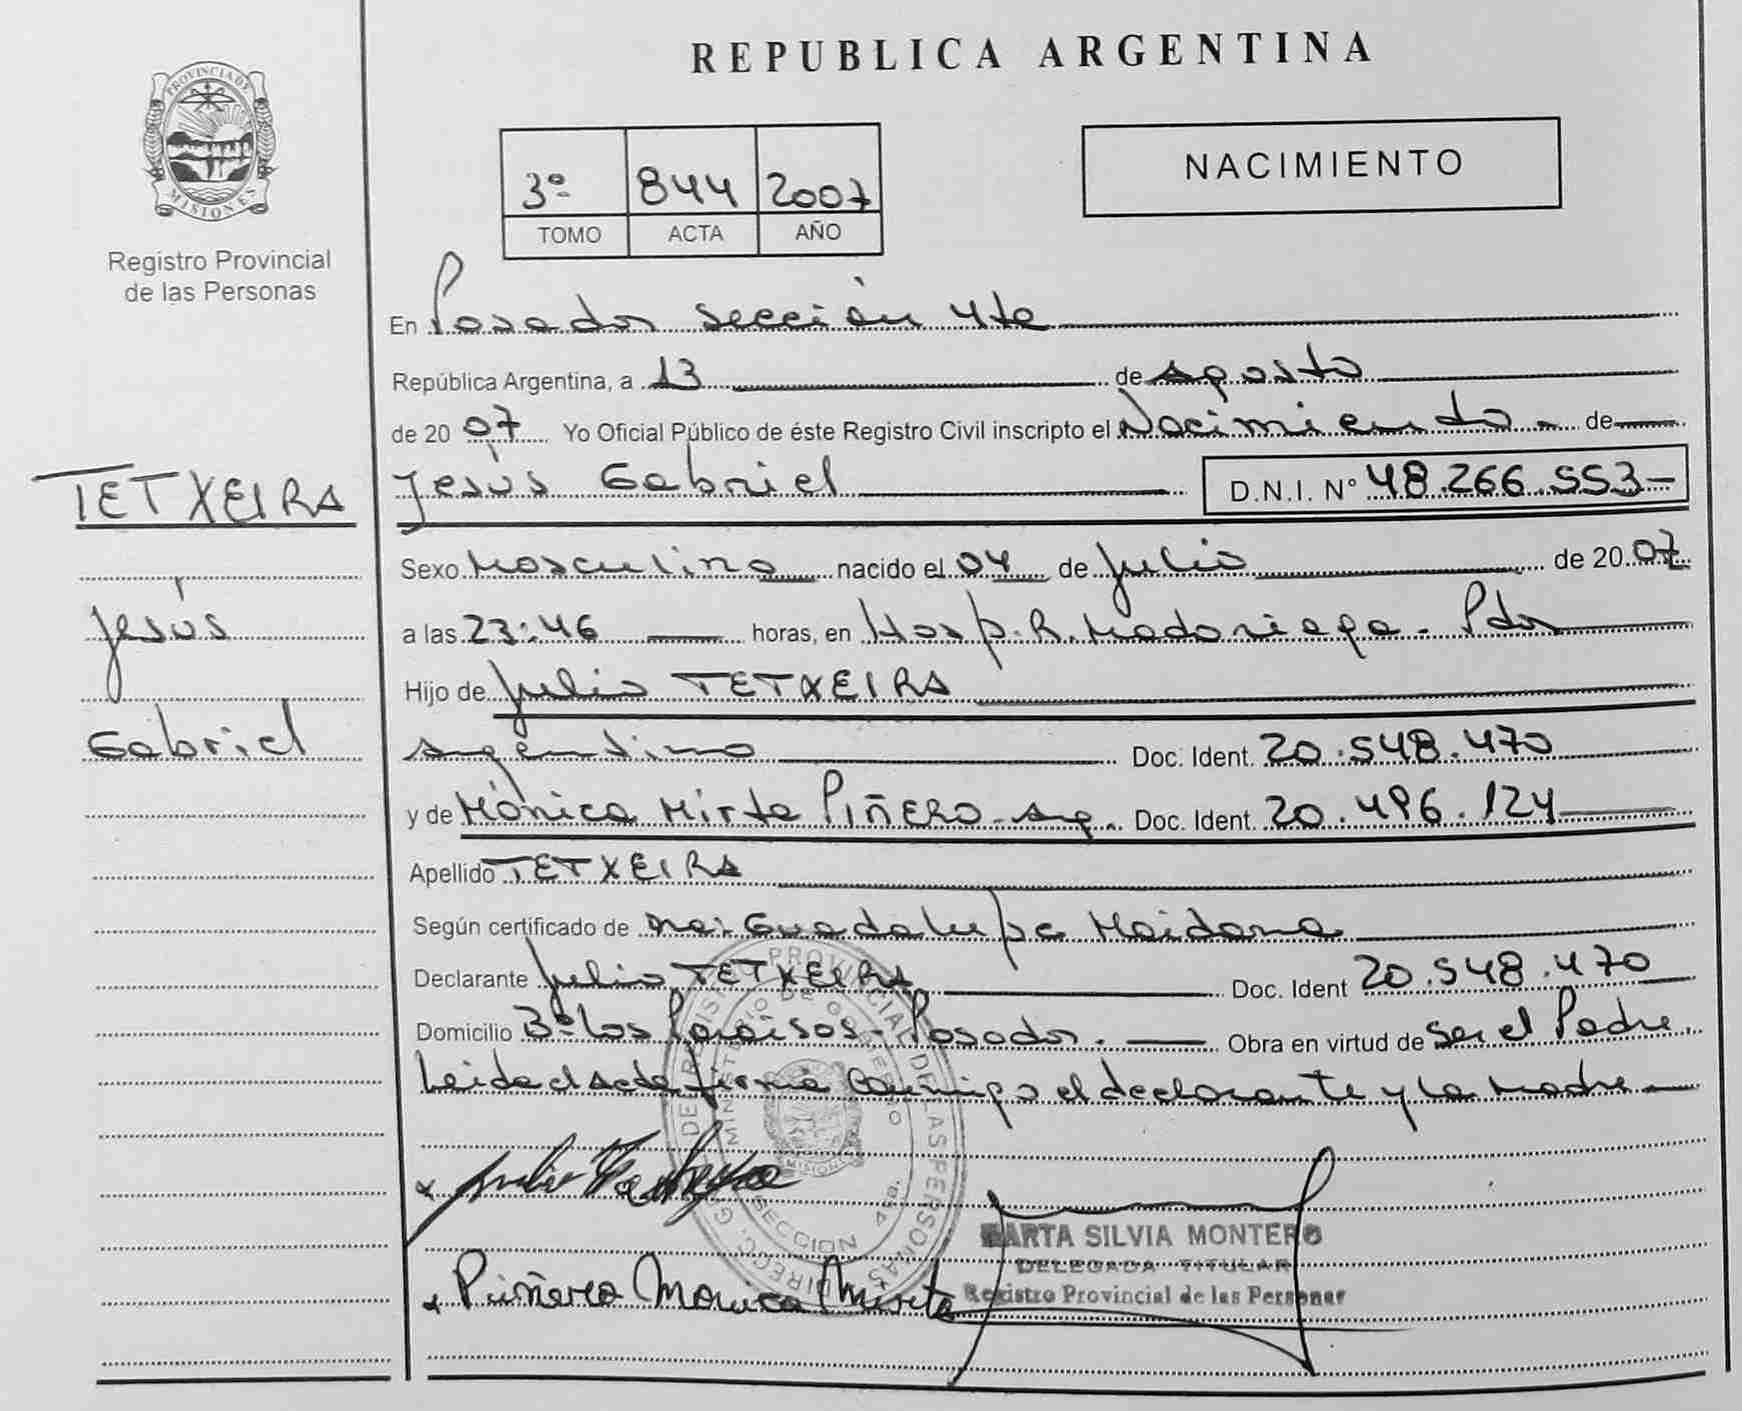 REPUBLICA ARGENTINA
PROVINCIA DE
MISIONES
Registro Provincial
de las Personas
3º 844 2007
TOMO ACTA AÑO
NACIMIENTO
En Posadas sección 4ta
República Argentina, a 13 de agosto
de 2007 Yo Oficial Público de éste Registro Civil inscripto el Nacimiento - de
TETXEIRA
Jesús Gabriel D.N.I. Nº 48.266.553-
Sexo Masculino nacido el 04 de Julio de 2007
Jesús
a las 23:46 horas, en Hosp. R. Madariaga - Pdas
Hijo de Julio TETXEIRA
Gabriel
argentino Doc. Ident. 20.548.470
y de Mónica Mirta PIÑERO - arg. Doc. Ident. 20.496.124
Apellido TETXEIRA
Según certificado de Guadalupe Maidana
Declarante Julio TETXEIRA Doc. Ident 20.548.470
Domicilio Bº Los Paraisos - Posadas. Obra en virtud de ser el Padre.
Leida el Acta firma conmigo el declarante y la madre
DIRECC. GRAL. DE REGISTRO PROVINCIAL DE LAS PERSONAS
MINISTERIO DE GOBIERNO
MISIONES
SECCION 4ta.
x Julio
MARTA SILVIA MONTERO
DELEGADA TITULAR
Registro Provincial de las Personas
x Piñero Monica Mirta